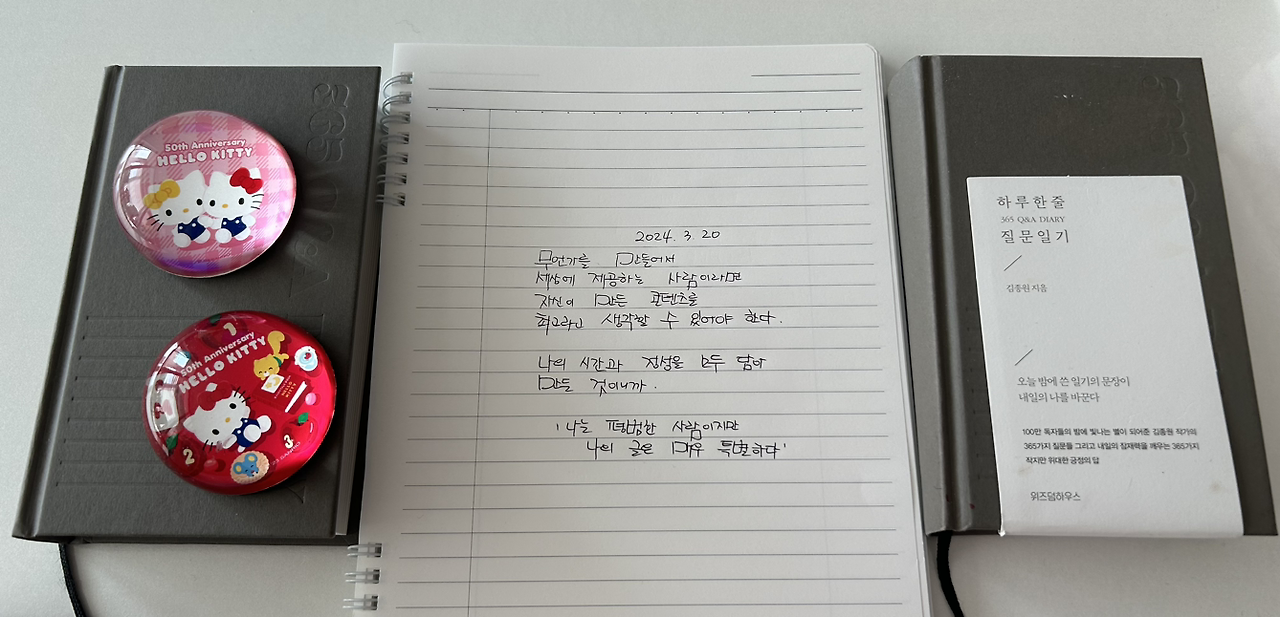 50th Anniversary
HELLO KITTY
50th Anniversary
HELLO KITTY
1
2
3
365
2024. 3. 20
무언가를 만들어서
세상에 제공하는 사람이라면
자신이 만든 콘텐츠를
최고라고 생각할 수 있어야 한다.
나의 시간과 정성을 모두 담아
만든 것이니까.
'나는 평범한 사람이지만
나의 글은 매우 특별하다'
하루 한 줄
365 Q&A DIARY
질문 일기
김종원 지음
오늘 밤에 쓴 일기의 문장이
내일의 나를 바꾼다
100만 독자들의 밤에 빛나는 별이 되어준 김종원 작가의
365가지 질문들 그리고 내일의 잠재력을 깨우는 365가지
작지만 위대한 긍정의 답
위즈덤하우스